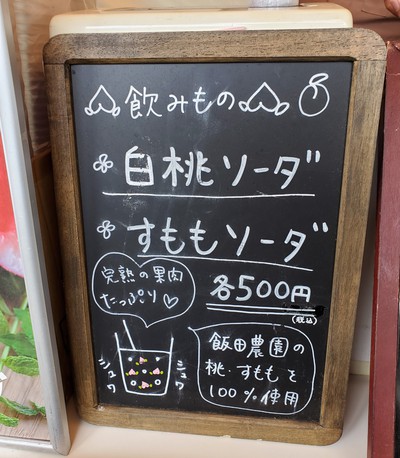 飲みもの
白桃ソーダ
すももソーダ
完熟の果肉
たっぷり♡
各500円
(税込)
シュワ
シュワ
飯田農園の
桃・すももを
100%使用